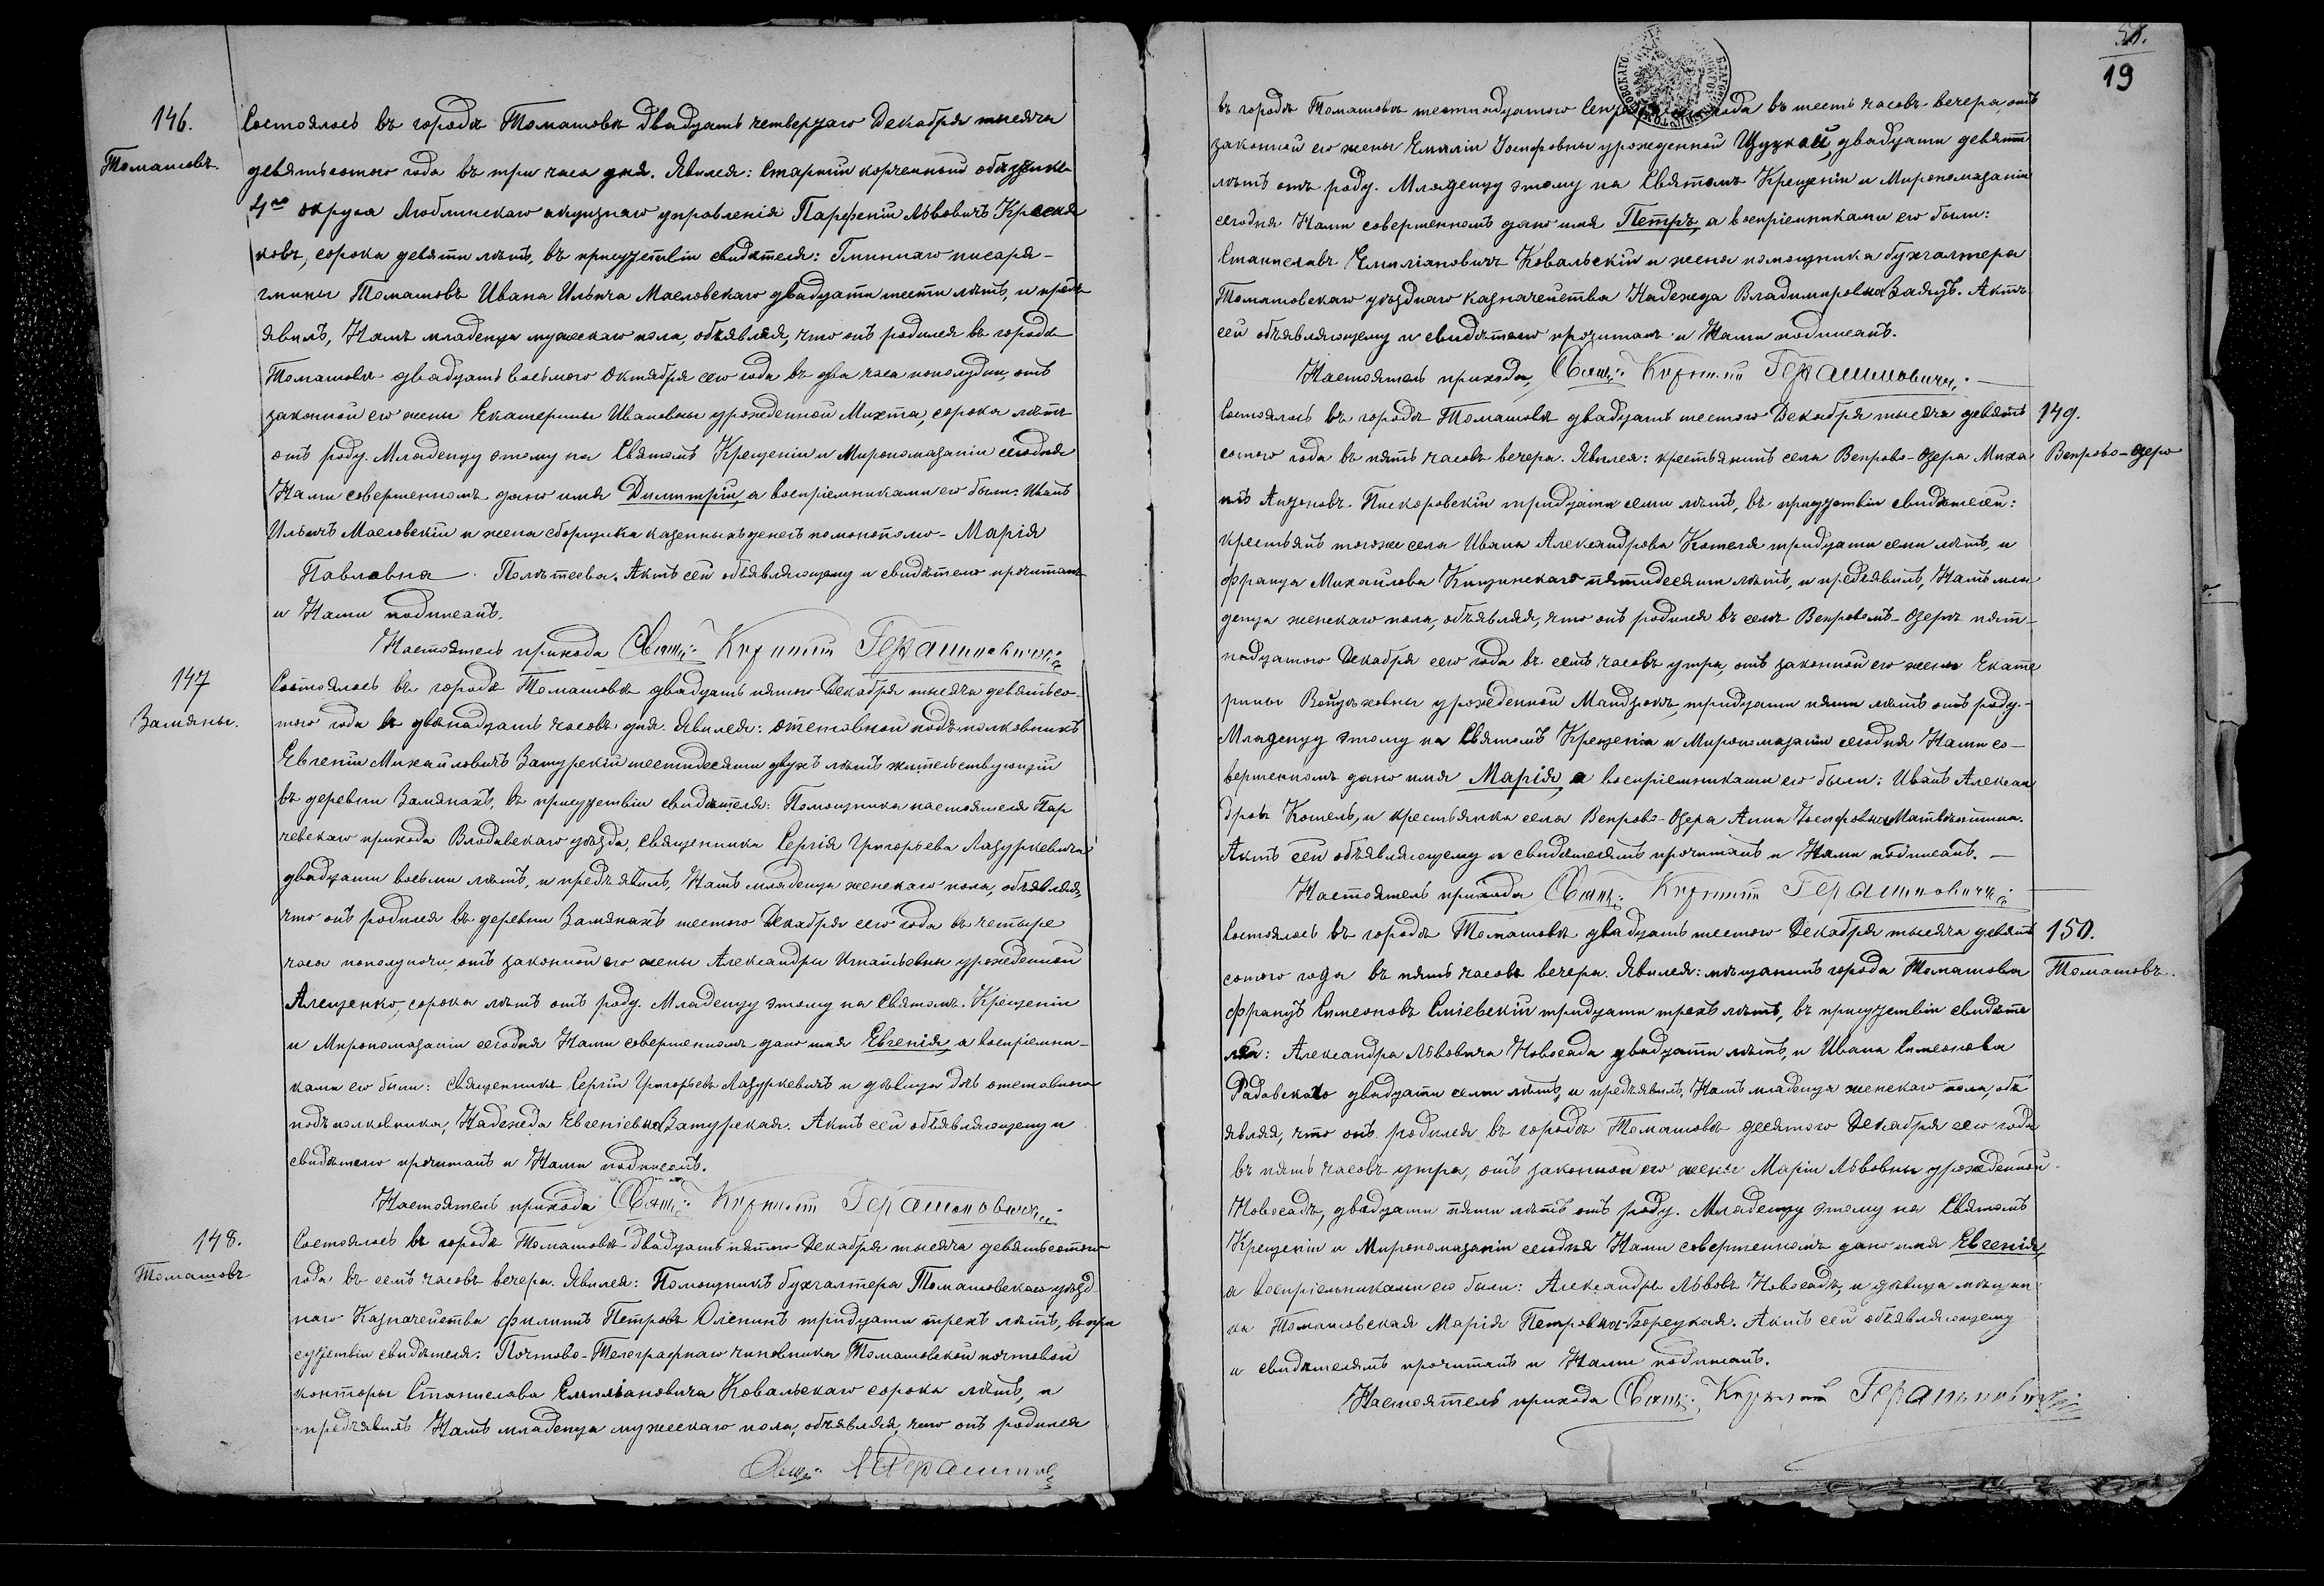 146.
Томашовъ.
Состоялось въ городѣ Томашовѣ двадцать четвертаго Декабря тысяча
девятьсотого года въ три часа дня. Явился: Старшій корчемный объѣздчикъ
4го округа Люблинскаго акцизнаго управленія Парфеній Львовичъ
ковъ, сорока девяти лѣтъ, въ присутствіи свидѣтеля: Гминнаго писаря
гмины Томашовъ Ивана Ильича Масловскаго двадцати шести лѣтъ, и предъ
явилъ, Намъ младенца мужескаго пола, объявляя, что онъ родился въ городѣ
Томашовѣ двадцать восьмого Октября сего года въ два часа пополудни, отъ
законной его жены Екатерины Ивановны урожденной Михта, сорока лѣтъ
отъ роду. Младенцу этому на Святомъ Крещеніи и Мѵропомазаніи сегодня
Нами совершенномъ дано имя Димитрій, а воспріемниками его были: Иванъ
Ильичъ Масловскій и жена сборщика казенныхъ денегъ по монополіи - Марія
Павловна Полѣтаева. Актъ сей объявляющему и свидѣтелю прочитанъ
и Нами подписанъ.
Настоятель прихода Свящ: Кирилл Герашиновичъ
147
Замяны.
Состоялось въ городѣ Томашовѣ двадцать пятого Декабря тысяча девятьсо-
того года въ двѣнадцать часовъ дня. Явился: отставной подъполковникъ
Евгеній Михайловичъ Затурскій шестидесяти двухъ лѣтъ жительствующій
въ деревни Замянахъ, въ присутствіи свидѣтеля: Помощника настоятеля Пар
чевскаго прихода Влодавскаго уѣзда, Священника Сергія Григорьева Лазуркевича
двадцати восьми лѣтъ, и предъявилъ, Намъ младенца женскаго пола, объявляя,
что онъ родился въ деревни Замянахъ шестого Декабря сего года въ четыре
часа пополуночи, отъ законной его жены Александры Игнатьевны урожденной
Алещенко, сорока лѣтъ отъ роду. Младенцу этому на Святомъ Крещеніи
и Мѵропомазаніи сегодня Нами совершенномъ дано имя Евгенія, а воспріемни-
ками его были: Священникъ Сергій Григорьевъ Лазуркевичъ и дѣвица дочь отставного
подъполковника, Надежда Евгеніевна Затурская. Актъ сей объявляющему и
свидѣтелю прочитанъ и Нами подписанъ.
Настоятель прихода Свящ: Кирилл Герашиновичъ
148.
Томашовъ
Состоялось въ городѣ Томашовѣ двадцать пятого Декабря тысяча девятьсотого
года въ семь часовъ вечера. Явился: Помощникъ бухгалтера Томашовскаго уѣзд
наго Казначейства Филипъ Петровъ Оленинъ тридцати трехъ лѣтъ, въ при
сутствіи свидѣтеля: Почтово-Телеграфнаго чиновника Томашовской почтовой
конторы Станислава Емиліановича Ковальскаго сорока лѣтъ, и
предъявилъ Намъ младенца мужескаго пола, объявляя, что онъ родился
Свящ: К Герашинов
19
въ городѣ Томашовѣ шестнадцатого года въ шесть часовъ вечера, отъ
законной его жены Емиліи Іосифовны урожденной Щуцкой, двадцати девяти
лѣтъ отъ роду. Младенцу этому на Святомъ Крещеніи и Мѵропомазаніи
сегодня Нами совершенномъ дано имя Петръ, а воспріемниками его были:
Станиславъ Емиліановичъ Ковальскій и жена помощника бухгалтера
Томашовскаго уѣзднаго казначейства Надежда Владимировна Заяцъ. Актъ
сей объявляющему и свидѣтелю прочитанъ и Нами подписанъ.
Настоятель прихода, Свящ: Кирилл Герашиновичъ.
149.
Вепрово-Озеро
Состоялось въ городѣ Томашовѣ двадцать шестого Декабря тысяча девять
сотого года въ пять часовъ вечера. Явился: крестьянинъ села Вепрово-Озера Миха
илъ Антоновъ Пискоровскій тридцати семи лѣтъ, въ присутствіи свидѣтелей:
крестьянъ тогоже села Ивана Александрова Котеля тридцати семи лѣтъ, и
Франца Михайлова пятидесяти лѣтъ, и предъявилъ, Намъ мла
денца женскаго пола, объявляя, что онъ родился въ селѣ Вепровомъ-Озерѣ пят-
надцатого Декабря сего года въ семь часовъ утра, отъ законной его жены Екате
рины Войцѣховны урожденной Мандзюкъ, тридцати пяти лѣтъ отъ роду.
Младенцу этому на Святомъ Крещеніи и Мѵропомазаніи сегодня Нами со-
вершенномъ дано имя Марія, а воспріемниками его были: Иванъ Алексан
дровъ Котель, и крестьянка села Вепрово-Озера Анна Іосифовна
Актъ сей объявляющему и свидѣтелямъ прочитанъ и Нами подписанъ.
Настоятель прихода Свящ: Кирилл Герашиновичъ
150.
Томашовъ.
Состоялось въ городѣ Томашовѣ двадцать шестого Декабря тысяча девять
сотого года въ пять часовъ вечера. Явился: мѣщанинъ города Томашова
Францъ Симеоновъ Сміевскій тридцати трехъ лѣтъ, въ присутствіи свидѣте
лей: Александра Львовича Новосада двадцати лѣтъ, и Ивана Симеонова
Радовскаго двадцати семи лѣтъ, и предъявилъ, Намъ младенца женскаго пола, объ
являя, что онъ родился въ городѣ Томашовѣ десятого Декабря сего года
въ пять часовъ утра, отъ законной его жены Маріи Львовны урожденной
Новосадъ, двадцати пяти лѣтъ отъ роду. Младенцу этому на Святомъ
Крещеніи и Мѵропомазаніи сегодня Нами совершенномъ дано имя Евгенія,
а воспріемниками его были: Александръ Львовъ Новосадъ, и дѣвица мѣщан
ка Томашовская Марія Петровна Борецкая. Актъ сей объявляющему
и свидѣтелямъ прочитанъ и Нами подписанъ.
Настоятель прихода Свящ: Кирилл Герашиновичъ